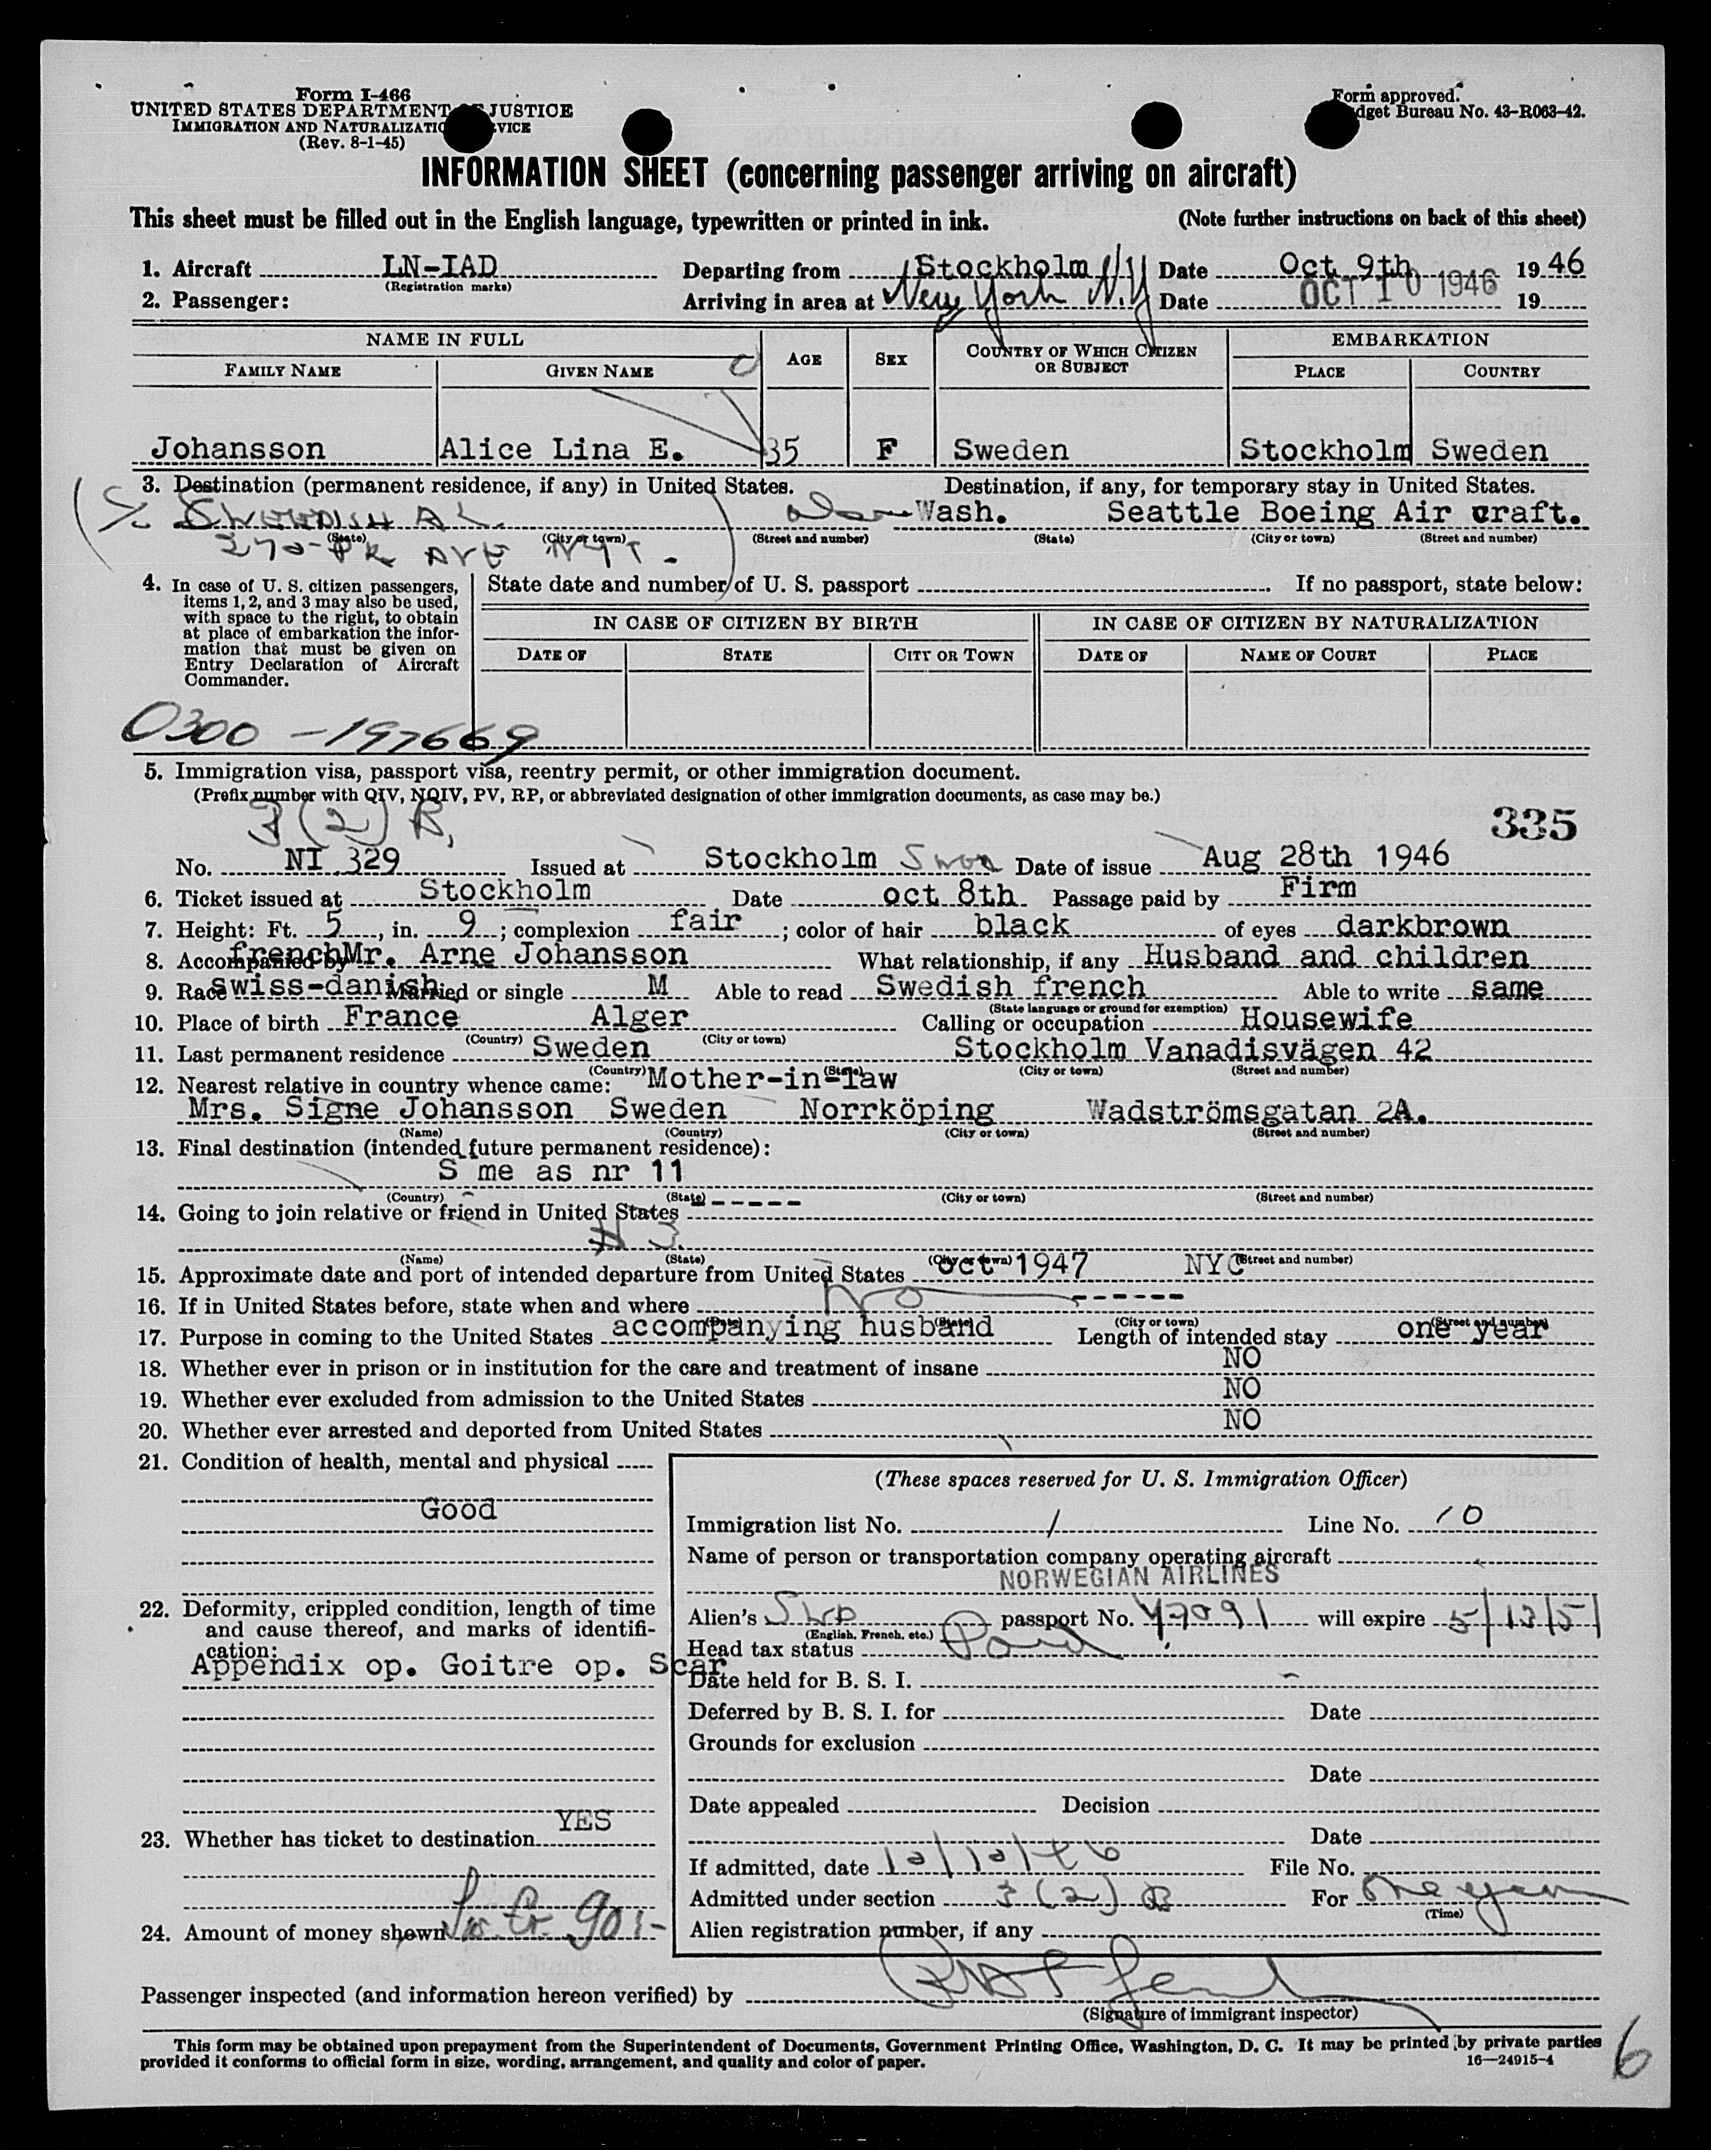 Form I-466
UNITED STATES DEPARTMENT JUSTICE
IMMIGRATION AND NATURALIZATIO VICE
(Rev. 8-1-45)
Form approved.
dget Bureau No. 43-R063-42.
INFORMATION SHEET (concerning passenger arriving on aircraft)
This sheet must be filled out in the English language, typewritten or printed in ink. (Note further instructions on back of this sheet)
1. Aircraft LN-IAD Departing from Stockholm Date Oct 9th 1946
(Registration marks)
2. Passenger: Arriving in area at New York N.Y Date OCT 10 1946 19
NAME IN FULL AGE SEX COUNTRY OF WHICH CITIZEN OR SUBJECT EMBARKATION
FAMILY NAME GIVEN NAME PLACE COUNTRY
Johansson Alice Lina E. 35 F Sweden Stockholm Sweden
3. Destination (permanent residence, if any) in United States. Destination, if any, for temporary stay in United States.
% SWEEDISH A L. Wash. Seattle Boeing Air craft.
(State) (City or town) (Street and number) (State) (City or town) (Street and number)
270-PK AVE NYC.
4. In case of U. S. citizen passengers, items 1, 2, and 3 may also be used, with space to the right, to obtain at place of embarkation the information that must be given on Entry Declaration of Aircraft Commander.
State date and number of U. S. passport If no passport, state below:
IN CASE OF CITIZEN BY BIRTH IN CASE OF CITIZEN BY NATURALIZATION
DATE OF STATE CITY OR TOWN DATE OF NAME OF COURT PLACE
0300-197669
5. Immigration visa, passport visa, reentry permit, or other immigration document.
(Prefix number with QIV, NQIV, PV, RP, or abbreviated designation of other immigration documents, as case may be.)
3(2) B, 335
No. NI 329 Issued at Stockholm Date of issue Aug 28th 1946
6. Ticket issued at Stockholm Date oct 8th Passage paid by Firm
7. Height: Ft. 5, in. 9; complexion fair; color of hair black of eyes darkbrown
8. Accompanied by french Mr. Arne Johansson What relationship, if any Husband and children
9. Race swiss-danish Married or single M Able to read Swedish french Able to write same
(State language or ground for exemption)
10. Place of birth France Alger Calling or occupation Housewife
(Country) (City or town)
11. Last permanent residence Sweden Stockholm Vanadisvägen 42
(Country) (State) (City or town) (Street and number)
12. Nearest relative in country whence came: Mother-in-law
Mrs. Signe Johansson Sweden Norrköping Wadströmsgatan 2A.
(Name) (Country) (City or town) (Street and number)
13. Final destination (intended future permanent residence):
S me as nr 11
(Country) (State) (City or town) (Street and number)
14. Going to join relative or friend in United States ------
# 3.
(Name) (State) (City or town) (Street and number)
15. Approximate date and port of intended departure from United States oct 1947 NYC
16. If in United States before, state when and where No ------
(Date) (State) (City or town) (Street and number)
17. Purpose in coming to the United States accompanying husband Length of intended stay one year
18. Whether ever in prison or in institution for the care and treatment of insane NO
19. Whether ever excluded from admission to the United States NO
20. Whether ever arrested and deported from United States NO
21. Condition of health, mental and physical
Good
22. Deformity, crippled condition, length of time and cause thereof, and marks of identification:
Appendix op. Goitre op. Scar
23. Whether has ticket to destination YES
24. Amount of money shown 90:-
(These spaces reserved for U. S. Immigration Officer)
Immigration list No. 1 Line No. 10
Name of person or transportation company operating aircraft
NORWEGIAN AIRLINES
Alien's passport No. 47091 will expire 5/13/51
(English, French, etc.)
Head tax status Paid
Date held for B. S. I.
Deferred by B. S. I. for Date
Grounds for exclusion
Date
Date appealed Decision
Date
If admitted, date 10/10/46 File No.
Admitted under section 3(2) B For One year
(Time)
Alien registration number, if any
Passenger inspected (and information hereon verified) by
(Signature of immigrant inspector)
This form may be obtained upon prepayment from the Superintendent of Documents, Government Printing Office, Washington, D. C. It may be printed by private parties
provided it conforms to official form in size, wording, arrangement, and quality and color of paper. 16—24915-4
6